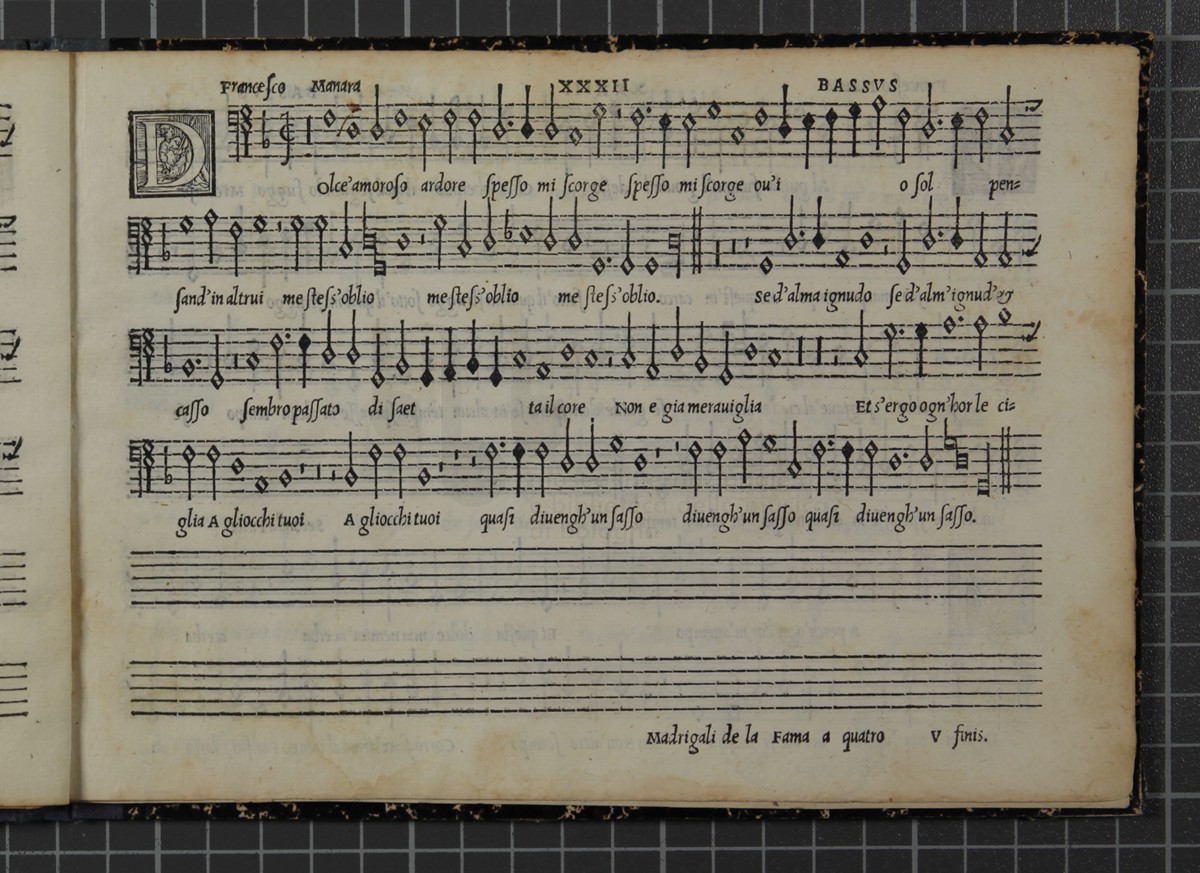 Franceſco Manara XXXII BASSVS
DOlce'amoroſo ardore ſpeſſo mi ſcorge ſpeſſo mi ſcorge ou'i o ſol pen=
ſand'in altrui me ſteſs'oblio me ſteſs'oblio me ſteſs'oblio. se d'alma ignudo ſe d'alm'ignud' &
caſſo ſembro paſſato di ſaet ta il core Non e gia merauiglia Et s'ergo ogn'hor le ci=
glia A gliocchi tuoi A gliocchi tuoi quaſi diuengh'un ſaſſo diuengh'un ſaſſo quaſi diuengh'un ſaſſo.
Madrigali de la Fama a quatro V finis.